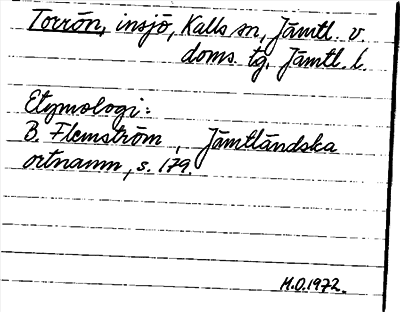 Torrön, insjö, Kalls sn, Jämtl. v.
doms. tg, Jämtl. l.
Etymologi:
B. Flemström, Jämtländska
ortnamn, s. 179.
M.O.1972.